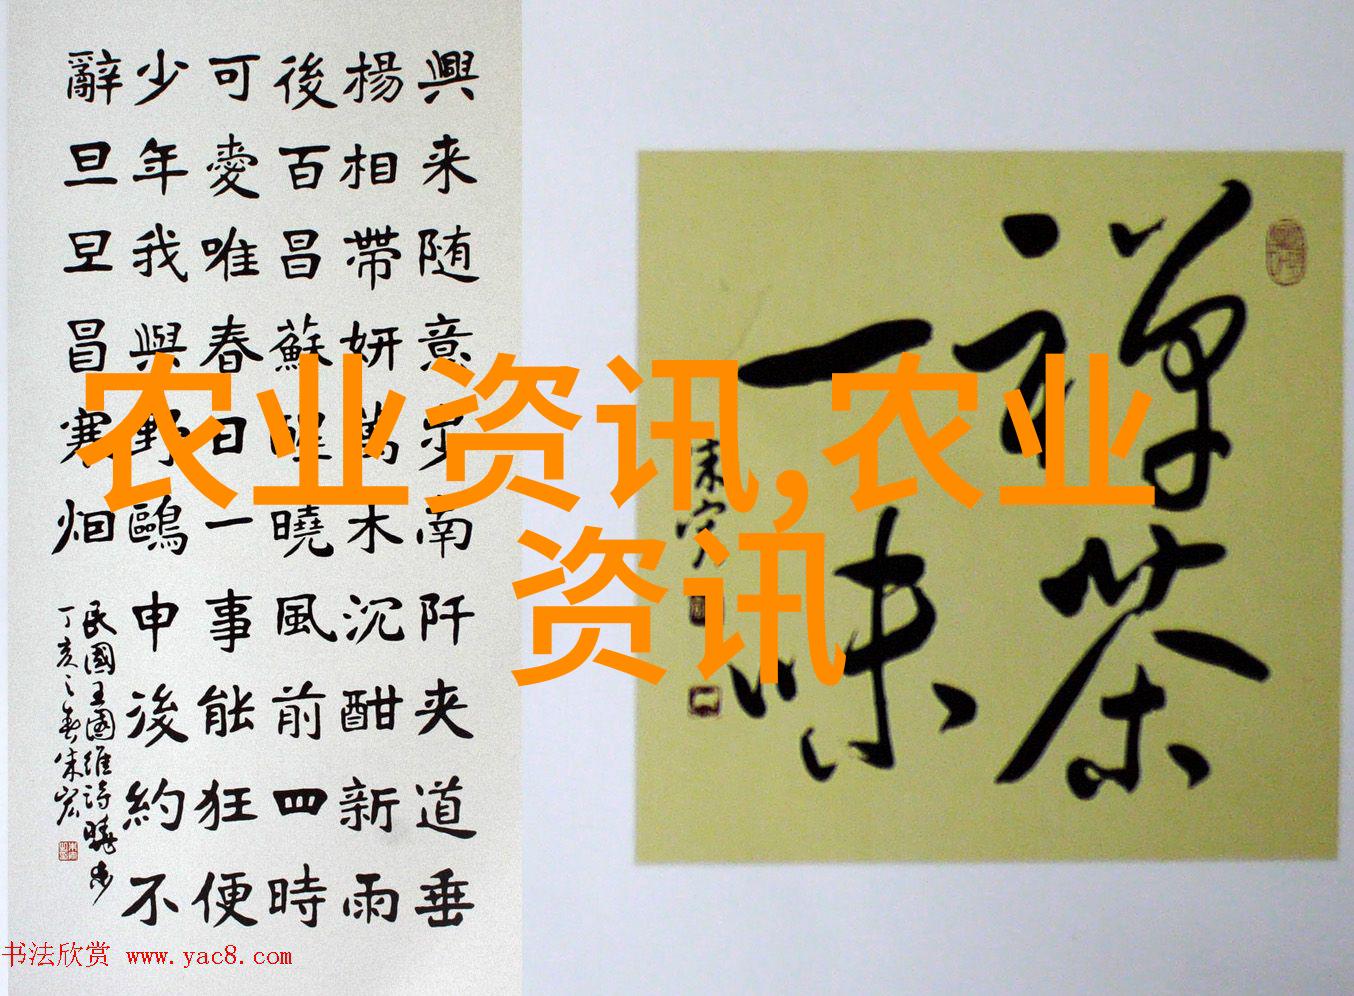 興来随意步南阡夹道垂
楊相帶妍萬木沉酣新雨
後百昌蘇醒曉風前四時
可愛唯春日一事能狂便
少年我與野鷗申後約不
辭旦旦冒寒烟
民國王國維詩曉步
丁亥之春朱宏
禅茶
一味
朱宏
农业资讯,农业
资讯
书法欣赏 www.yac8.com